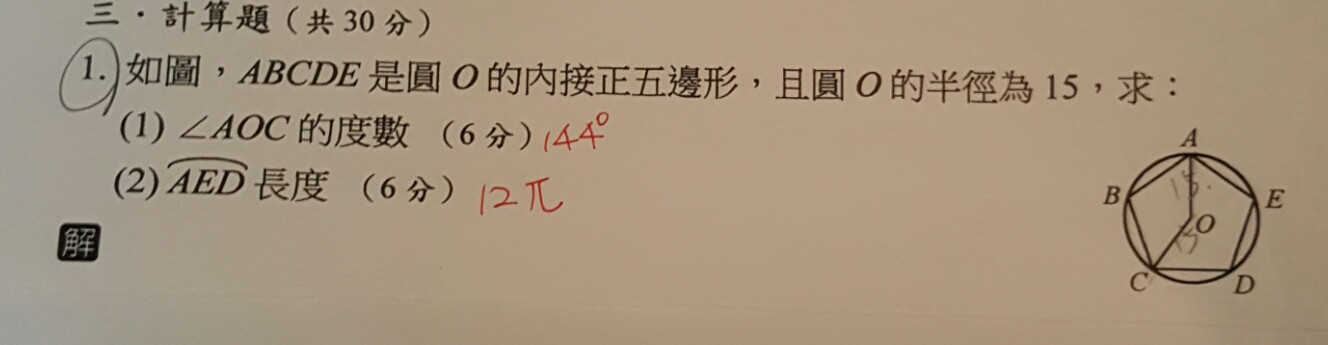 三．計算題（共 30 分）
1. 如圖，ABCDE 是圓 O 的內接正五邊形，且圓 O 的半徑為 15，求：
(1) ∠AOC 的度數 （6 分）144°
(2) AED 長度 （6 分） 12π
解
A
B
E
15
O
15
C
D